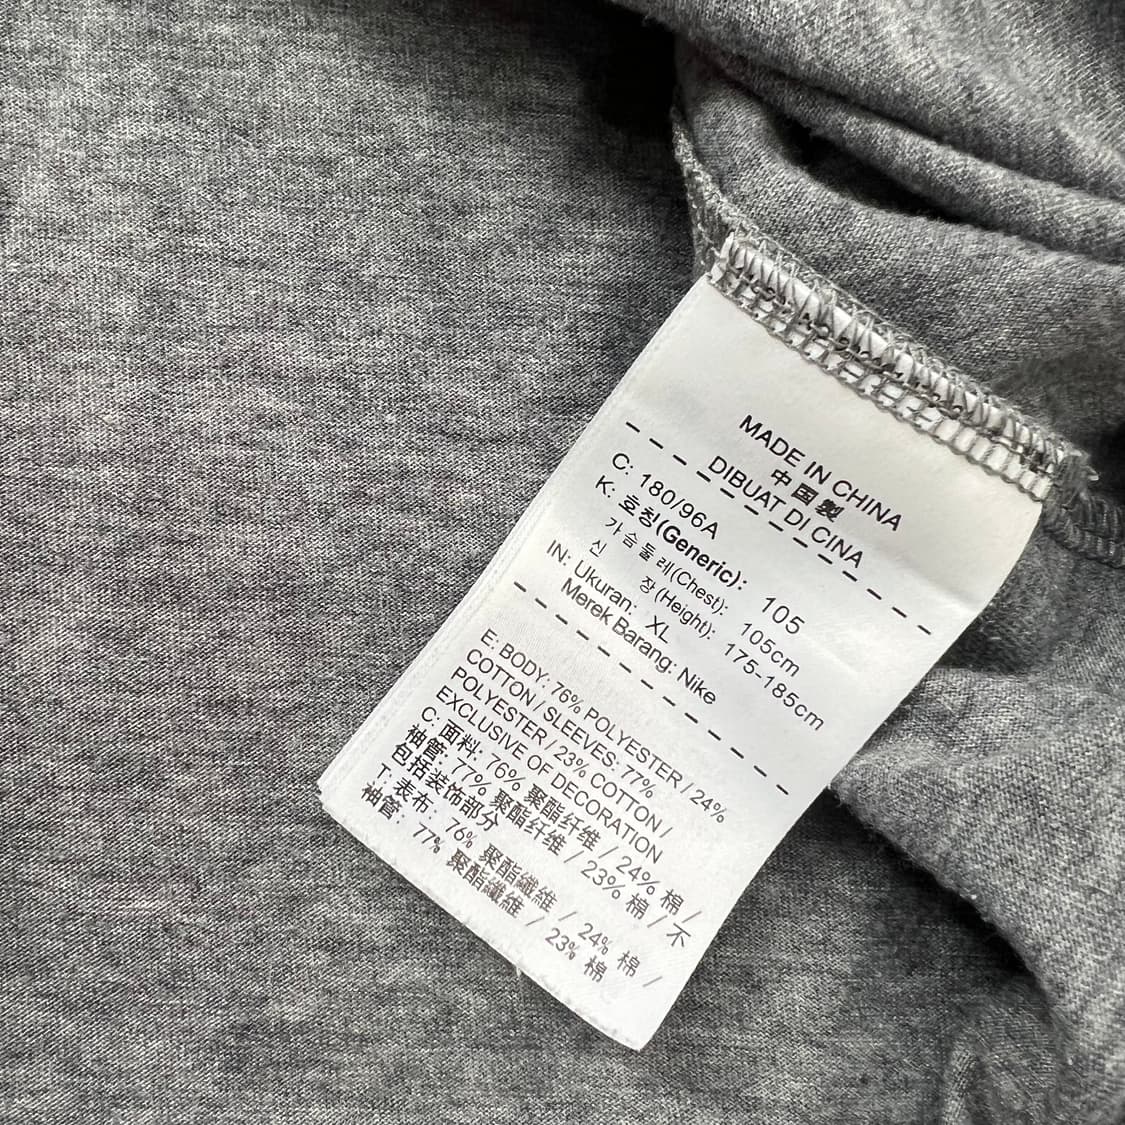 MADE IN CHINA
中国製
DIBUAT DI CINA
C: 180/96A
K: 호칭(Generic): 105
가슴둘레(Chest): 105cm
신 장(Height): 175-185cm
IN: Ukuran: XL
Merek Barang: Nike
E: BODY: 76% POLYESTER / 24%
COTTON / SLEEVES: 77%
POLYESTER / 23% COTTON /
EXCLUSIVE OF DECORATION
C: 面料: 76% 聚酯纤维 / 24% 棉 /
袖管: 77% 聚酯纤维 / 23% 棉 / 不
包括装饰部分
T: 表布: 76% 聚酯纖維 / 24% 棉 /
袖管: 77% 聚酯纖維 / 23% 棉